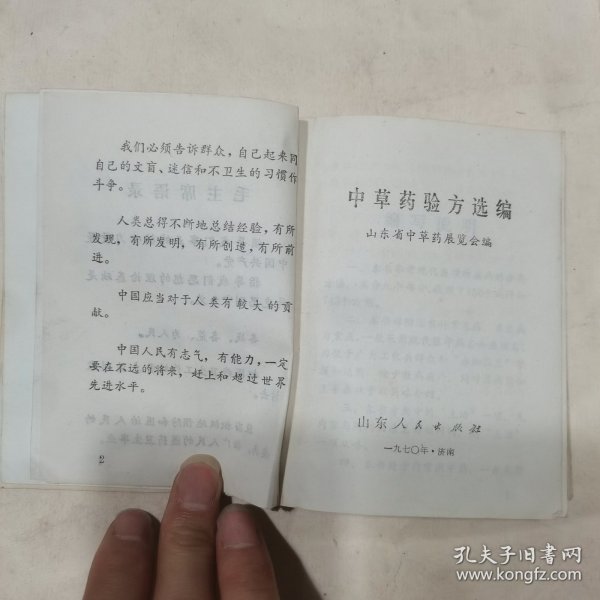 我们必须告诉群众，自己起来同
自己的文盲、迷信和不卫生的习惯作
斗争。
人类总得不断地总结经验，有所
发现，有所发明，有所创造，有所前
进。
中国应当对于人类有较大的贡
献。
中国人民有志气，有能力，一定
要在不远的将来，赶上和超过世界
先进水平。
2
中草药验方选编
山东省中草药展览会编
山东人民出版社
一九七〇年·济南
孔夫子旧书网
www.kongfz.com